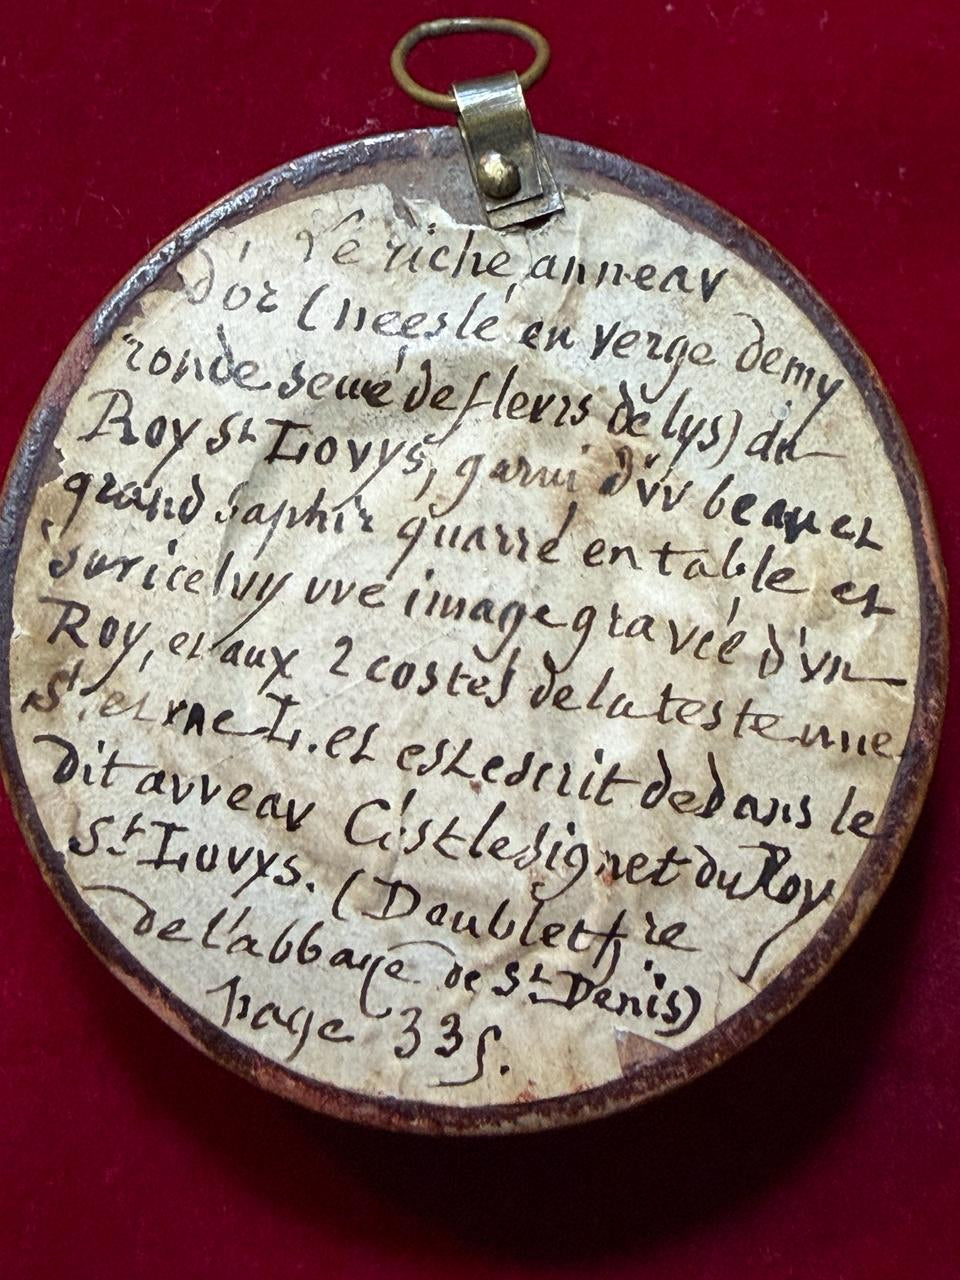 Le riche anneav
d'or (neeslé en verge demy
ronde semé de fleurs de lys) du
Roy St Lovys, garni d'vv beau et
grand saphir quarré en table et
sur icelvy vve image gravée d'vn
Roy, et aux 2 costés de la teste une
S. et vne L. et est escrit dedans le
dit avveav C'est le signet du Roy
St Lovys. (Doublet,
de l'abbaye de St Denis)
page 335.